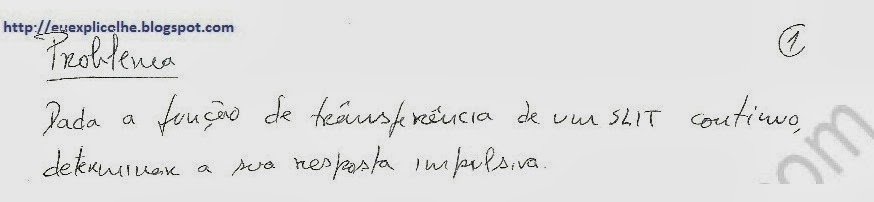 http://euexplicolhe.blogspot.com
1
Problema
Dada a função de transferência de um SLIT contínuo,
determinar a sua resposta impulsiva.
com